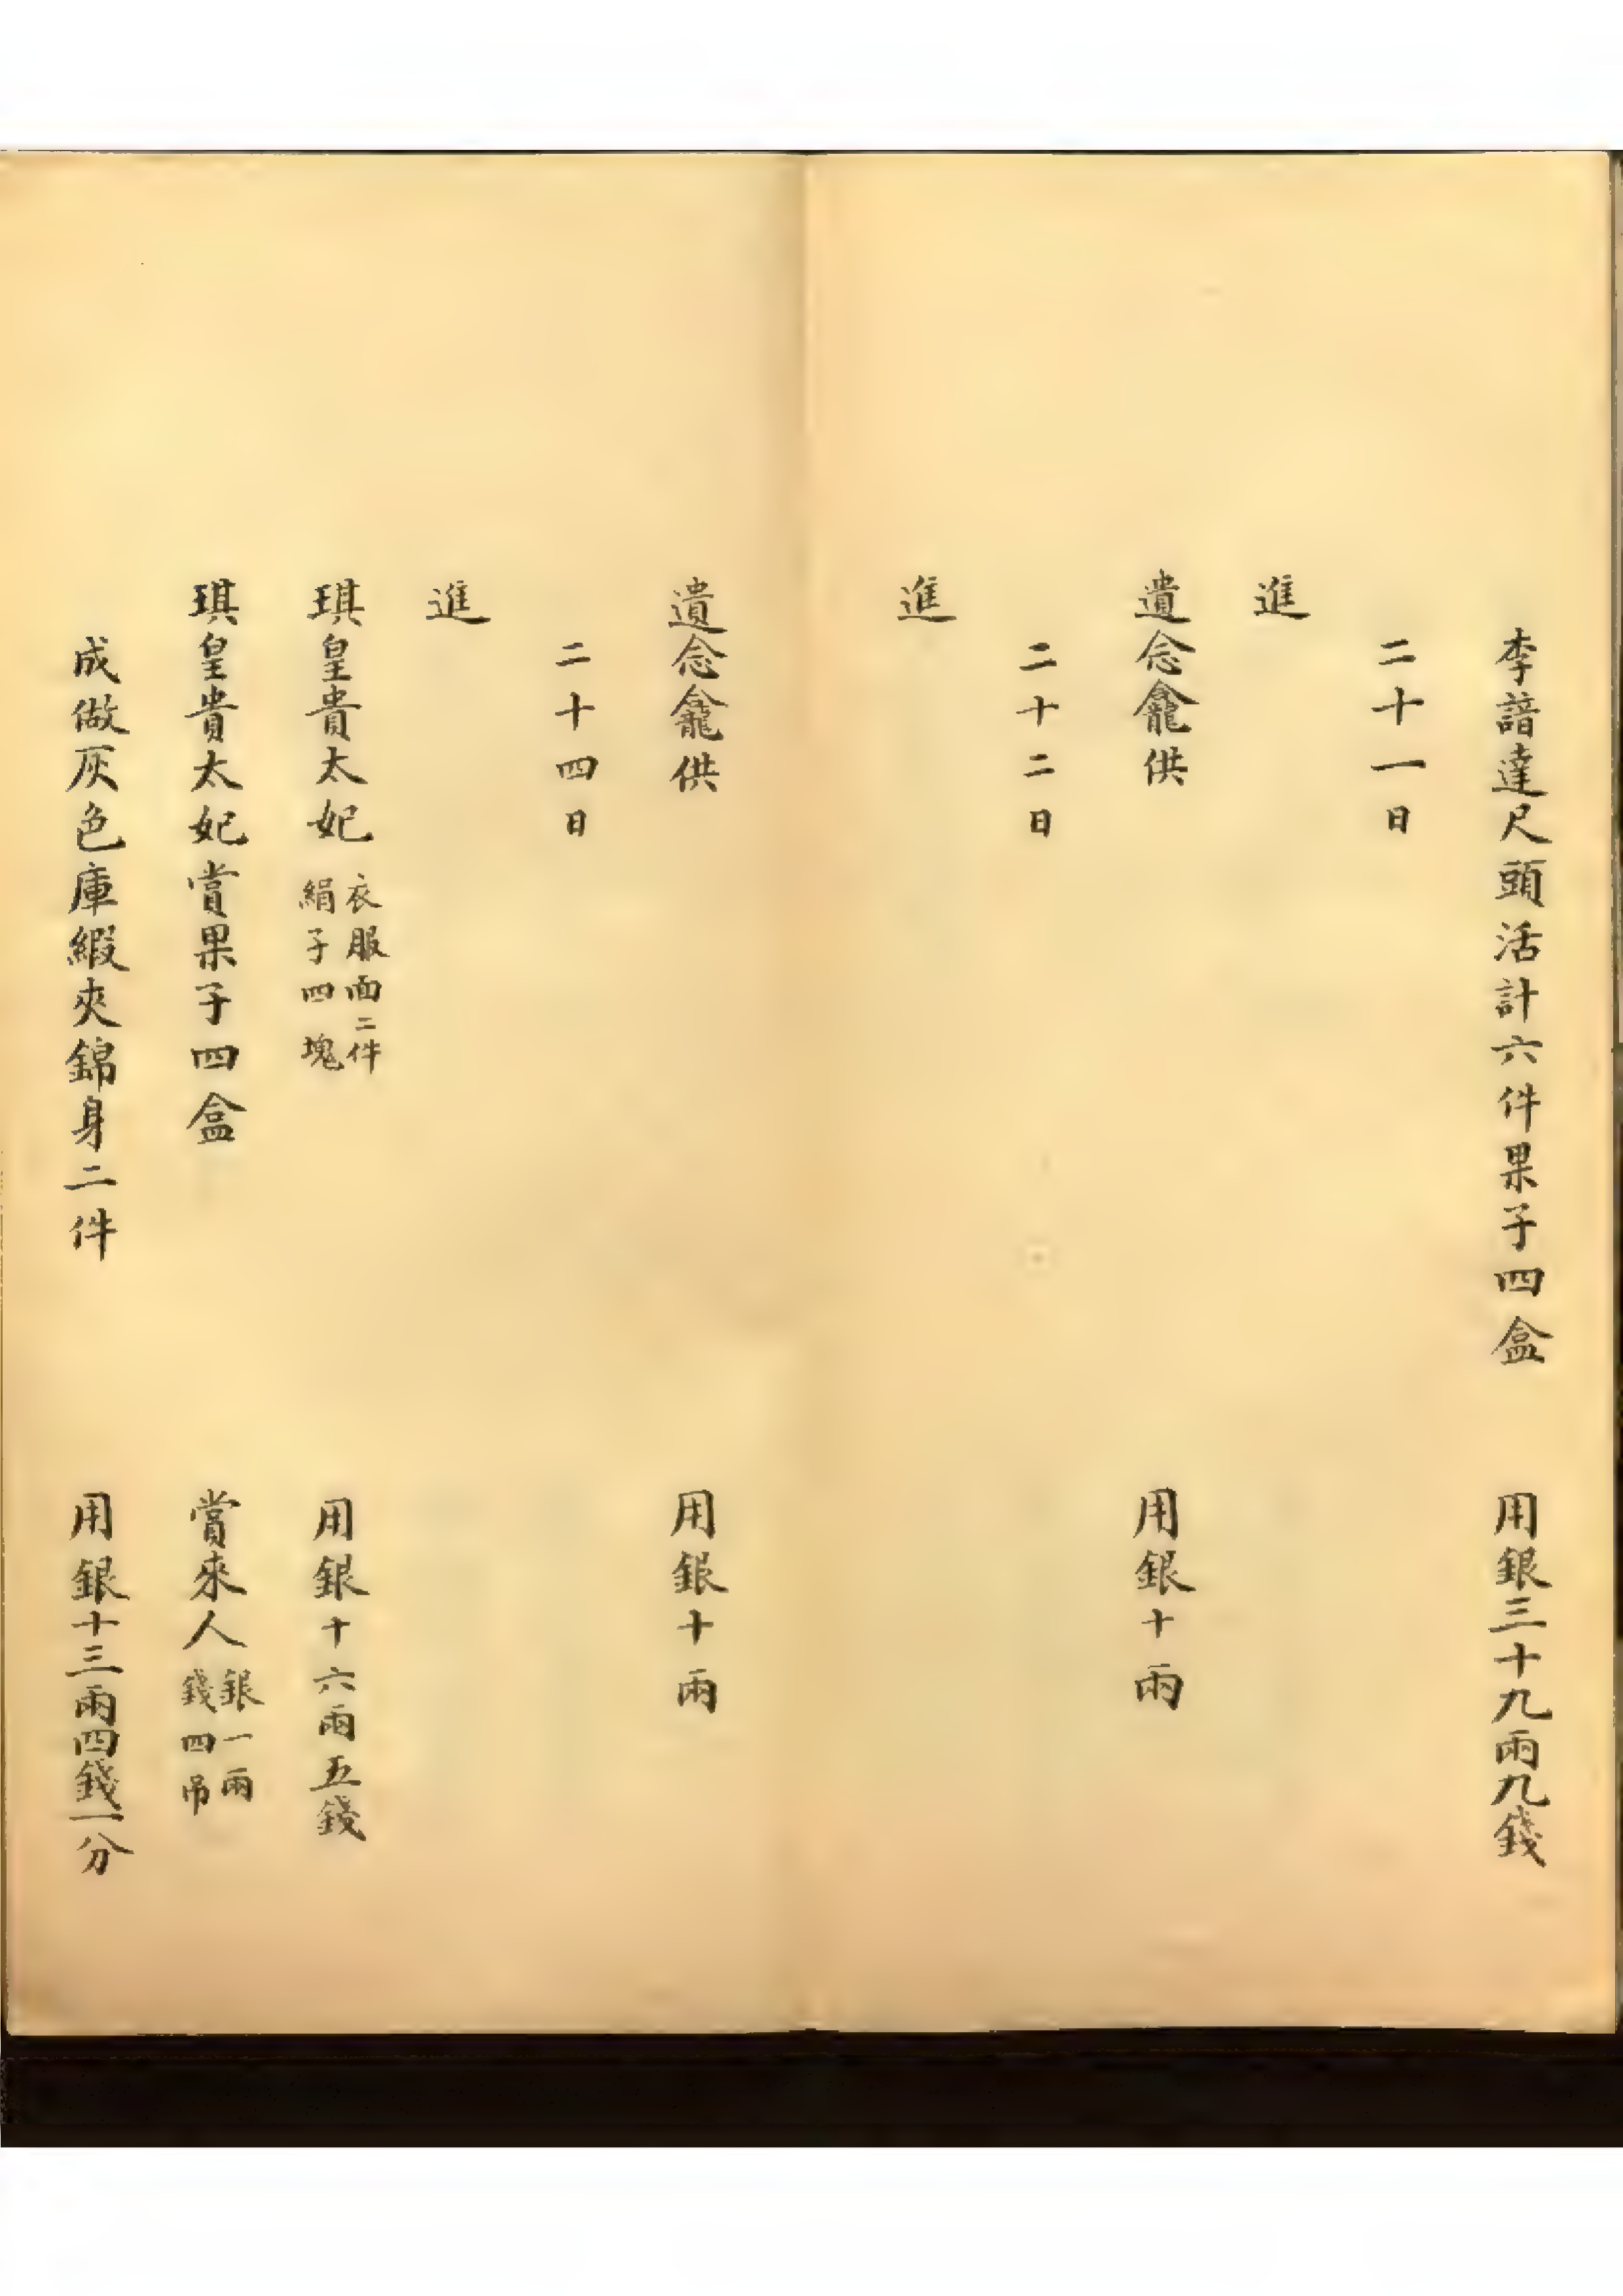 李諳達尺頭活計六件果子四盒　用銀三十九兩九錢
二十一日
進
遺念龕供　用銀十兩
二十二日
進
遺念龕供　用銀十兩
二十四日
進
琪皇貴太妃　衣服面二件　絹子四塊　用銀十六兩五錢
琪皇貴太妃賞果子四盒　賞來人　銀一兩　錢四吊
成做灰色庫緞夾錦身二件　用銀十三兩四錢一分